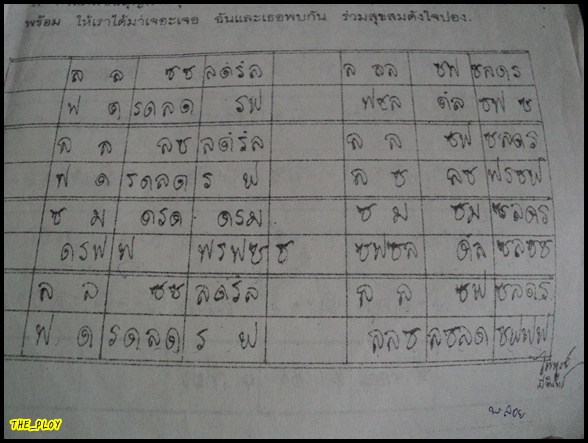 พร้อม ให้เราได้มาเจอะเจอ ฉันและเธอพบกัน ร่วมสุขสมดังใจปอง.
ล ล ซซ ลดํรํล ล ลล ซฟ ซลดร
ฟ ด รดลด รฟ ฟซล ดํล ซฟ ซ
ล ล ลซ ลดํรํล ล ล ซฟ ซลดร
ฟ ด รดลด ร ฟ ล ซ ลซ ฟรซฟ
ซ ม ดรด ดรม ซ ม ซม รลดร
ดรฟ ฟ ฟรฟซ ซ ซฟซล ดํล ซลซซ
ล ล ซซ ลดํรํล ล ล ซฟ ซลดร
ฟ ด รดลด ร ฟ ลลซ ลซลด ซฟฟฟ
พลอย
THE_PLOY